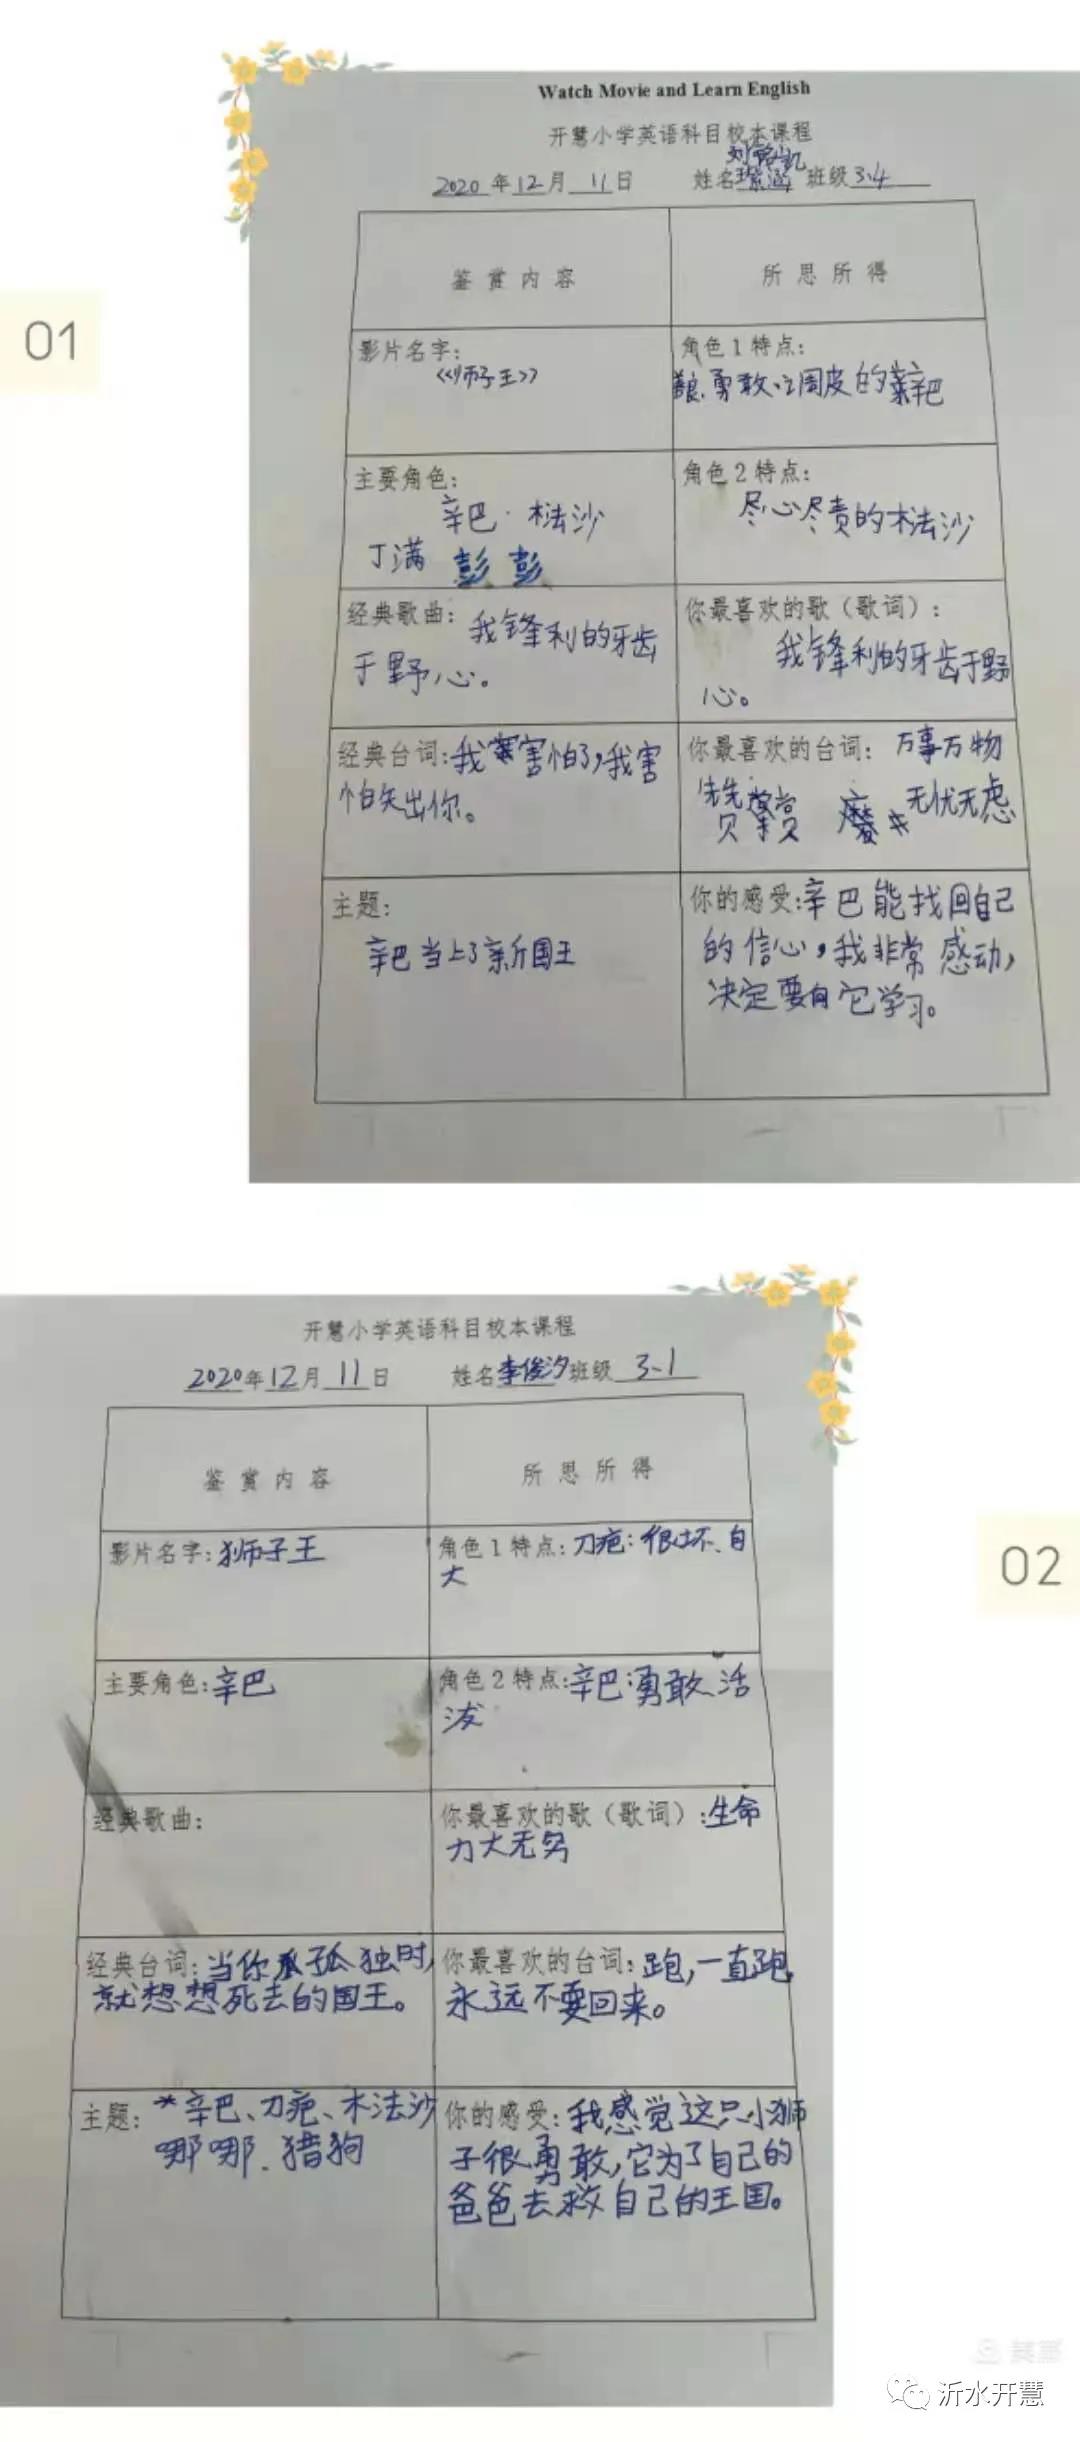 Watch Movie and Learn English
开慧小学英语科目校本课程
刘铭凯
2020年12月11日 姓名 班级3.4
鉴赏内容 所思所得
01
影片名字:
《狮子王》
角色1特点:
勇敢、调皮的辛巴
主要角色:
辛巴·木法沙
丁满 彭彭
角色2特点:
尽心尽责的木法沙
经典歌曲:我锋利的牙齿
于野心。
你最喜欢的歌(歌词):
我锋利的牙齿于野
心。
经典台词:我害怕了,我害
怕失出你。
你最喜欢的台词:万事万物
无忧无虑
主题:
辛巴当上了新国王
你的感受:辛巴能找回自己
的信心,我非常感动,
决定要向它学习。
开慧小学英语科目校本课程
2020年12月11日 姓名李俊汐班级3、1
鉴赏内容 所思所得
影片名字:狮子王
角色1特点:刀疤:很坏、自
大
02
主要角色:辛巴
角色2特点:辛巴:勇敢、活
泼
经典歌曲:
你最喜欢的歌(歌词):生命
力大无穷
经典台词:当你孤独时,
就想想死去的国王。
你最喜欢的台词:跑,一直跑,
永远不要回来。
主题:*辛巴、刀疤、木法沙
哪哪、猎狗
你的感受:我感觉这只小狮
子很勇敢,它为了自己的
爸爸去救自己的王国。
美篇
沂水开慧